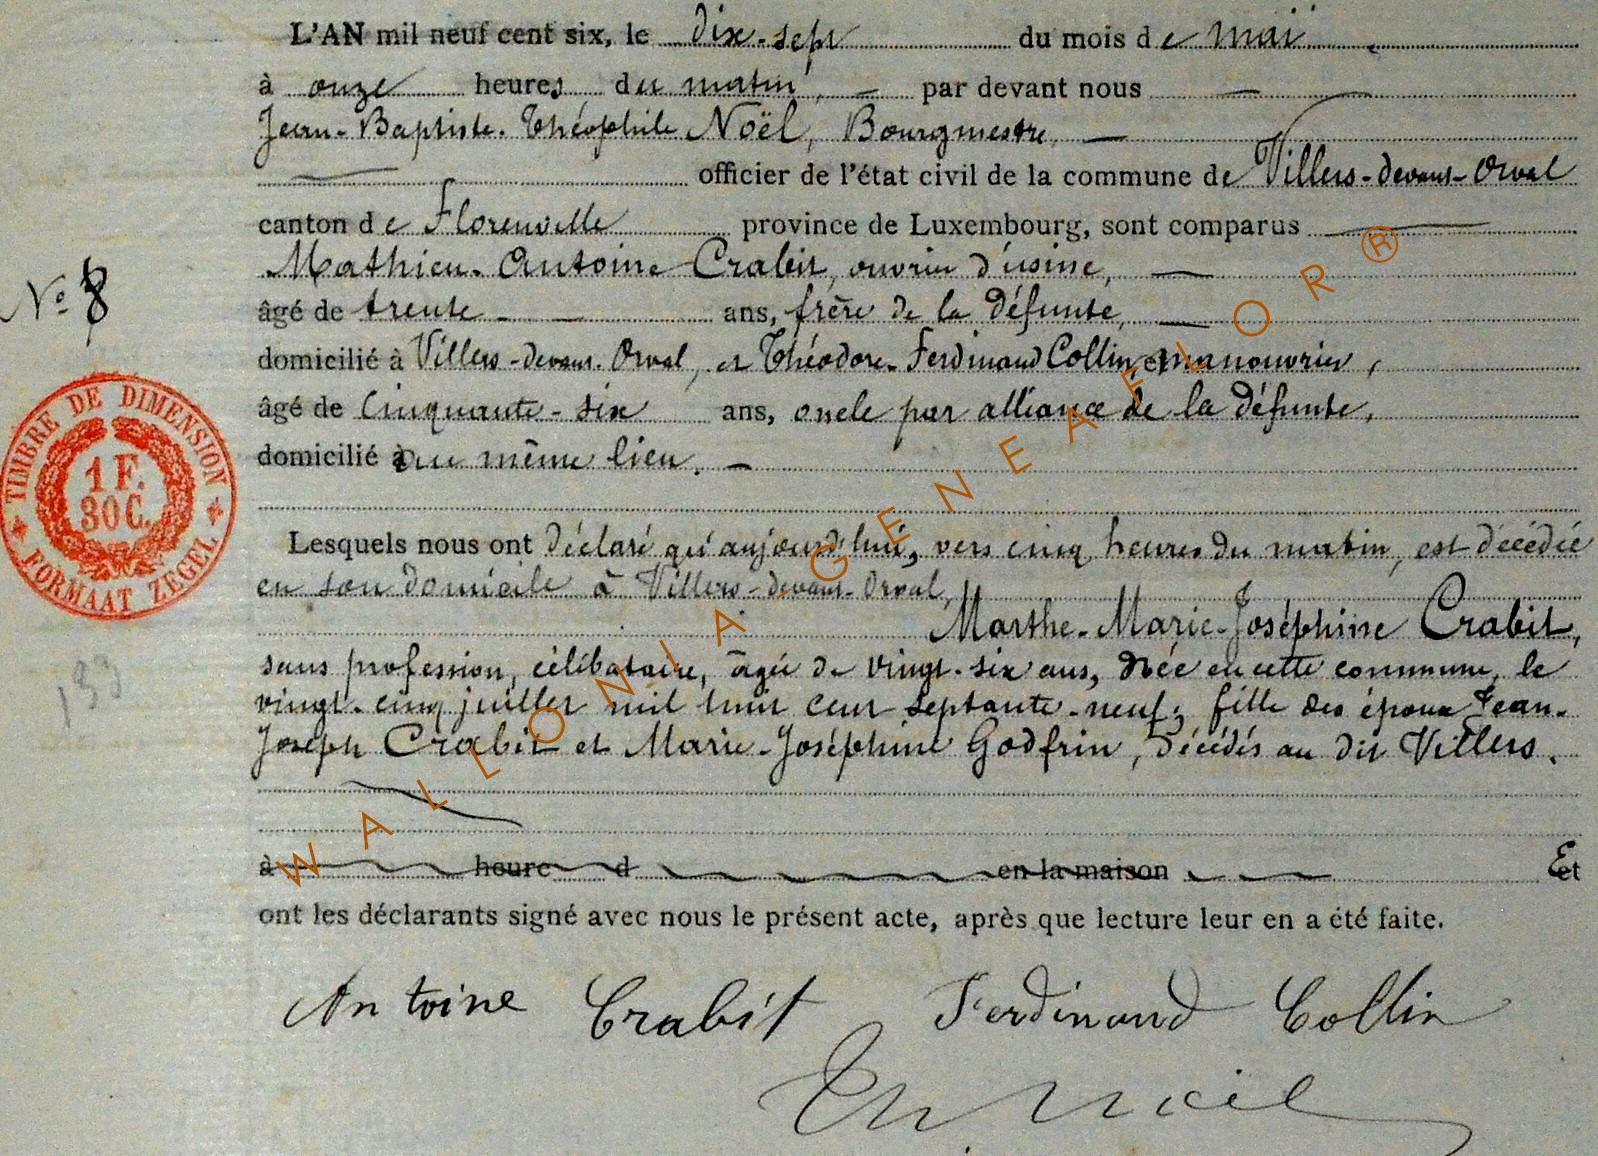 L'AN mil neuf cent six, le dix-sept du mois de mai
à onze heures du matin, par devant nous
Jean-Baptiste-Théophile Noël, Bourgmestre,
officier de l'état civil de la commune de Villers-devant-Orval
canton de Florenville province de Luxembourg, sont comparus
Mathieu-Antoine Crabit, ouvrier d'usine,
âgé de trente ans, frère de la défunte,
No 8
domicilié à Villers-devant-Orval, et Théodore-Ferdinand Collin, manouvrier,
âgé de cinquante-six ans, oncle par alliance de la défunte,
domicilié au même lieu.
TIMBRE DE DIMENSION
1 F.
30 C.
FORMAAT ZEGEL
Lesquels nous ont déclaré qu'aujourd'hui, vers cinq heures du matin, est décédée
en son domicile à Villers-devant-Orval,
Marthe-Marie-Joséphine Crabit,
sans profession, célibataire, âgée de vingt-six ans, née en cette commune, le
vingt-cinq juillet mil huit cent septante-neuf; fille des époux Jean-
Joseph Crabit et Marie-Joséphine Godfrin, décédés au dit Villers.
à heure d en la maison Et
ont les déclarants signé avec nous le présent acte, après que lecture leur en a été faite.
Antoine Crabit Ferdinand Collin
Th. Noël
WALLONIA GENEAFLOR ®